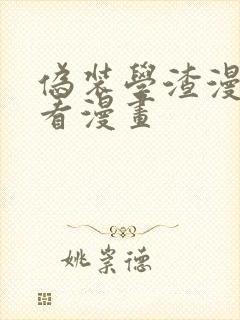 偽裝學渣漫
看漫畫
姚崇德